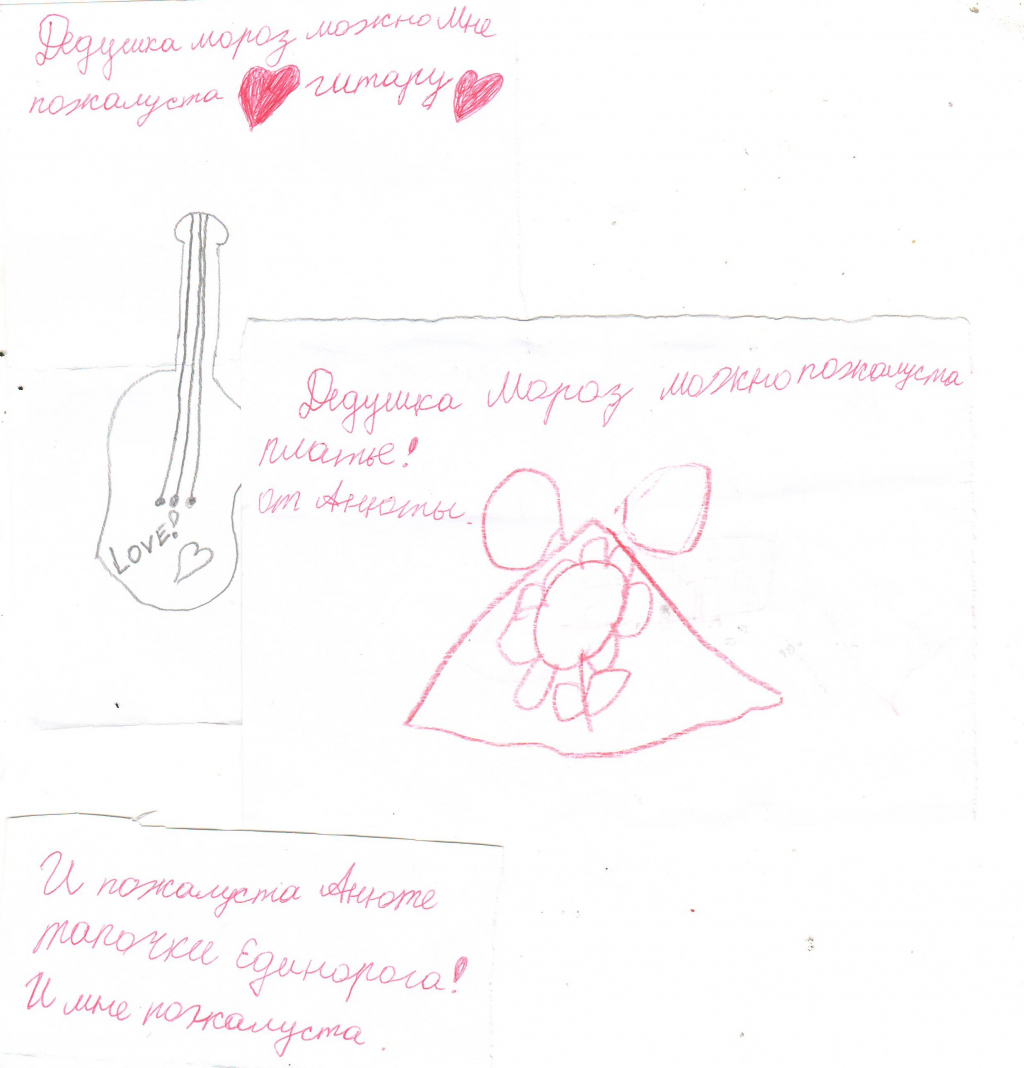 Дедушка мороз можно Мне
пожалуста гитару
LOVE!
Дедушка Мороз можно пожалуста
платье!
от Анюты.
И пожалуста Анюте
тапочки Единорога!
И мне пожалуста